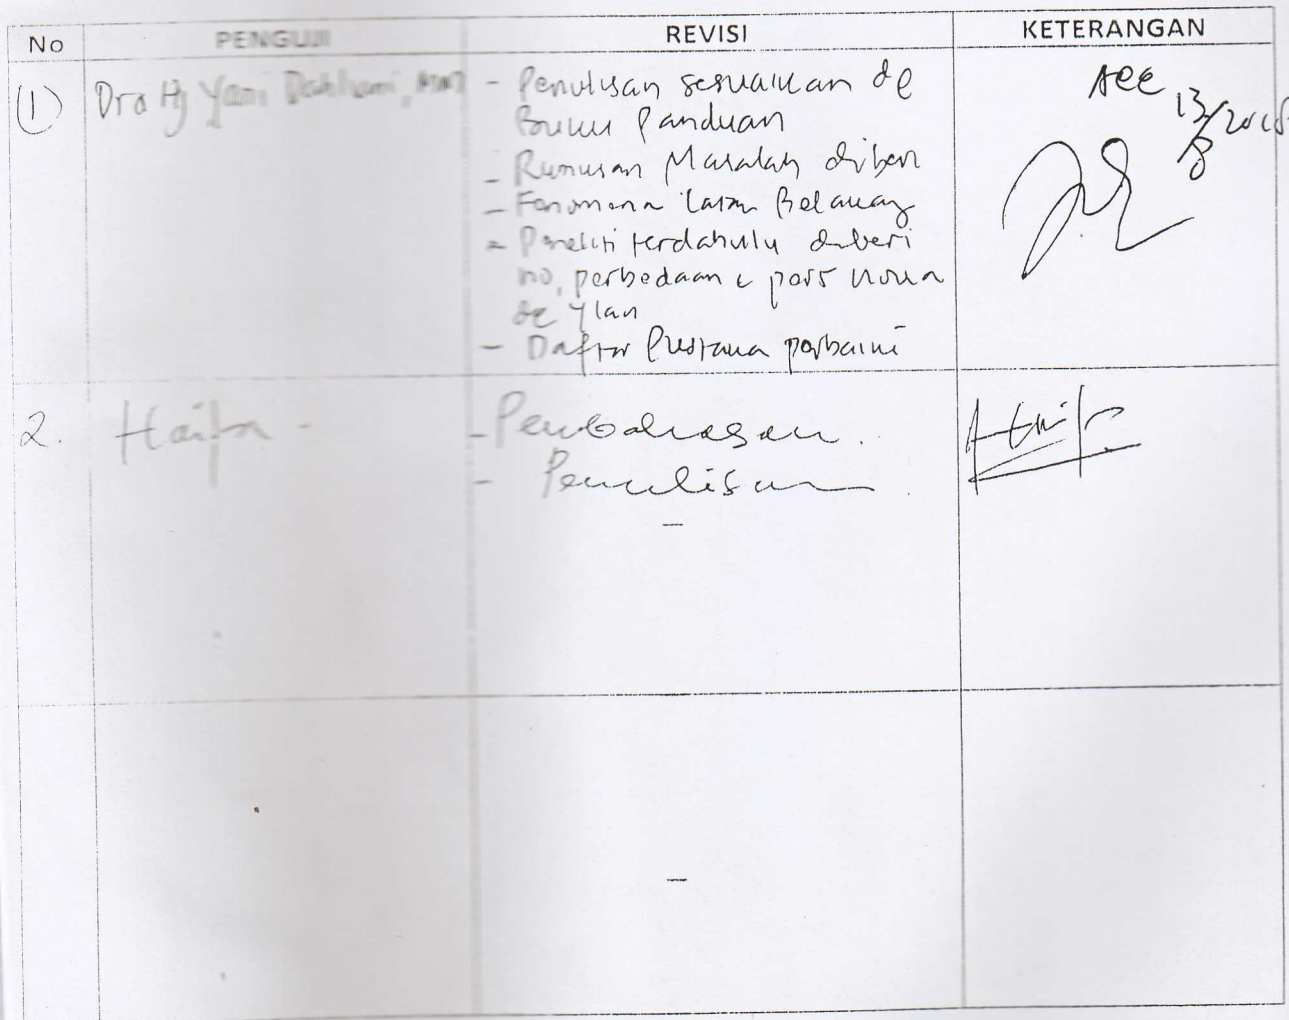 No PENGUJI REVISI KETERANGAN
(1) Dra Hj Yani Dahliani, MM
- Penulisan sesuaikan dg
Buku Panduan
- Rumusan Masalah diberi
- Fenomena Latar Belakang
- Peneliti terdahulu diberi
no, perbedaan
- Daftar Pustaka perbaiki
ACC 13/8/2018
2. Haifa -
- Pembahasan.
- Penulisan.
-
-